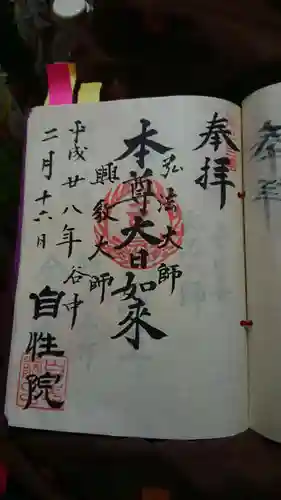 奉拝
弘法大師
本尊大日如来
興教大師
平成廿八年谷中
二月十六日
自性院